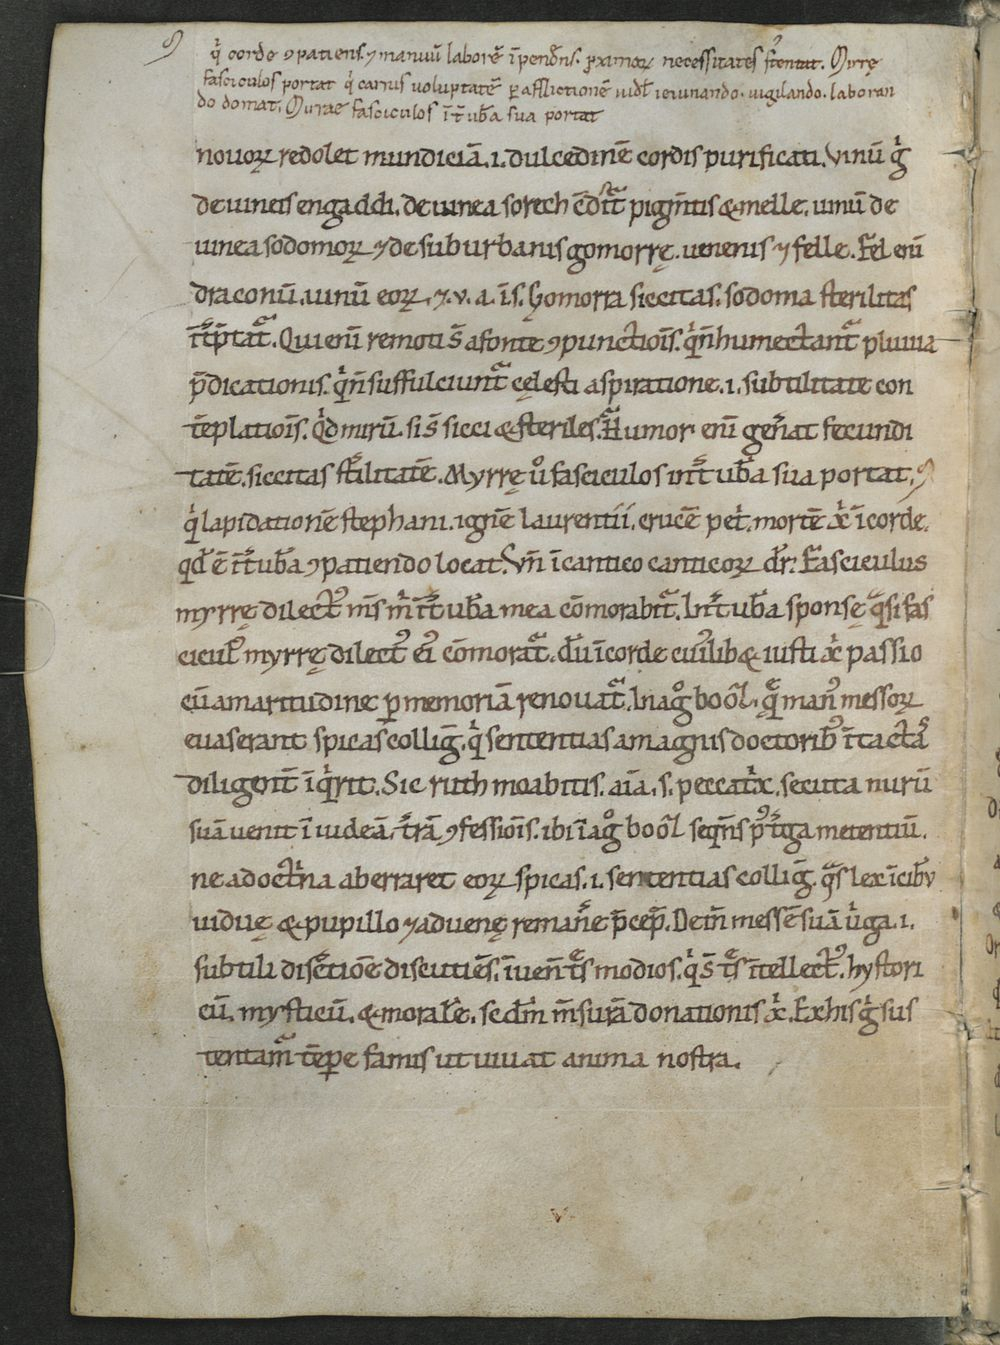 q̓ corde ꝯpatiens. ⁊ manuū laborē īpendēs. ꝓximoꝝ necessitates sꝰtentat. Myrrę
fasciculos portat q̓ carnis uoluptatē ꝑ afflictionē uidł ieiunando. uigilando. laboran
do domat. Myrrae fasciculos īt̄ ub̄a sua portat
nouoꝝ redolet mundiciā. i. dulcedinē cordis purificati. Vinū g̓
de uineis engaddi. de uinea sorech pigm̄tis & melle. uinū de
uinea sodomoꝝ ⁊ de suburbanis gomorrę. uenenis ⁊ felle. Fel eni̅
draconū. uinū eoꝝ. ⁊. v. a. īs. Gomorra siccitas. sodoma sterilitas
Qui eni̅ remoti s̄ a fonte ꝯpunctiōis. q̓s n̄ humectant᷑ pluuia
p̄dicationis. q̓s n̄ suffulciunt᷑ cęlesti aspiratione. i. subtilitate con
tēplatiōis. qd̓ mirū. si s̄ sicci & steriles. Humor eni̅ gen̄at fecundi
tatē. siccitas st̓ilitatē. Myrrę ů fasciculos int̄ ub̄a sua portat.
q̓ lapidationē stephani. ignē laurentii. crucē pet̓. mortē x̓ī corde.
qd̄ ē īt̄ ub̄a ꝯpatiendo locat. Vn̄ ī cantico canticoꝝ dr̄. Fasciculus
myrrę dilectꝰ m̄s m̓ īt̄ ub̄a mea cōmorabit᷑. Int̄ ub̄a sponsę q̄si fas
cicułꝰ myrrę dilectꝰ ei̓ cōmorat᷑. dū ī corde cui̓lib& iusti x̓ passio
cū amaritudine ꝑ memoriā renouat᷑. In ag̊ booꝫ. q̄ manꝰ messoꝝ
euaserant spicas collig̓. q̓ sententias a magnis doctoribꝰ ītactas
diligent̄ īq̓rit. Sic ruth moabitis. aīa. s. peccat̓x. secuta nurū
suā uenit ī iudeā. t̓rā ꝯfessiōis. ibi ī ag̊ booꝫ seq̄ns pꝰ t̓ga metentiū.
ne a doct̓na aberraret eoꝝ spicas. i. sententias collig̓. q̄s lex ī cib̄v
uiduę & pupillo ⁊ aduenę remanēe p̄cep̓. Dein̄ messē suā ů̓ga. i.
subtili discretiōe discutiēs. īuen̓ t̄s modios. q̓ s̄ t̄s ītellectꝰ. hystori
cū. mysticū. & moralē. secd̄m m̄surā donationis x̓. Ex his g̓ sus
tentam᷑ tēpe̅ famis ut uiuat anima nostra.